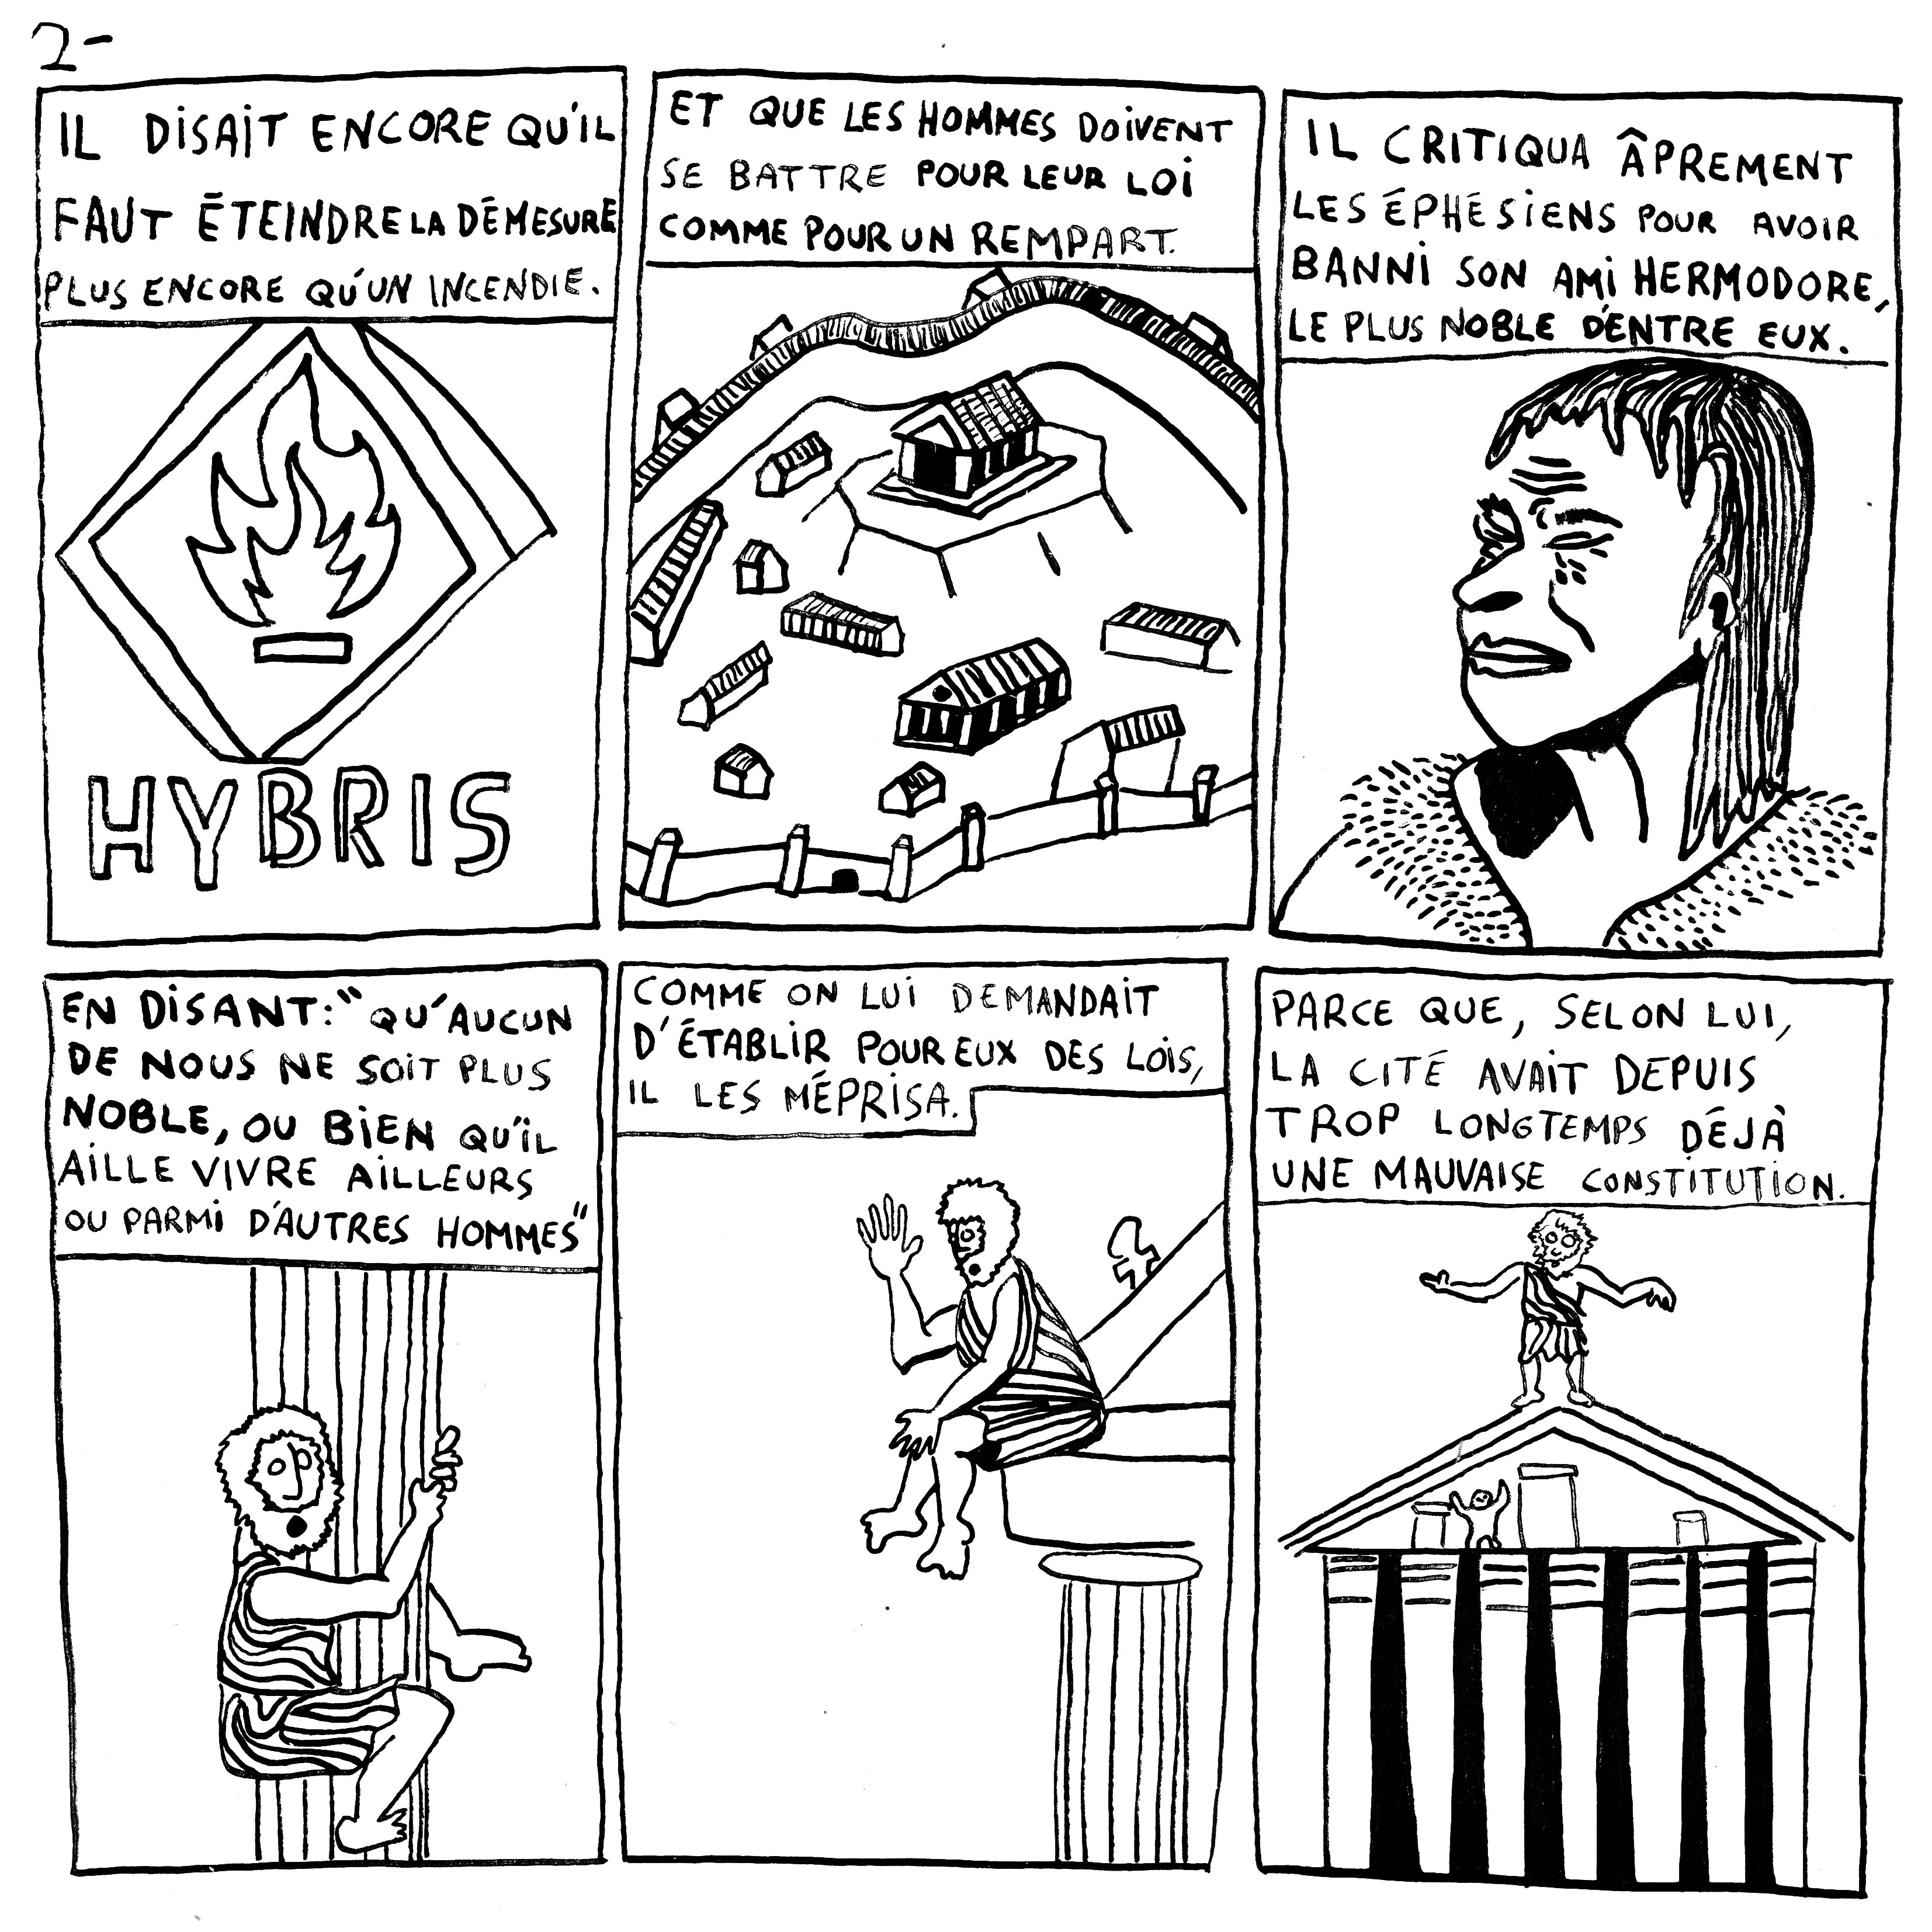 2-
IL DISAIT ENCORE QU'IL
FAUT ÉTEINDRE LA DÉMESURE
PLUS ENCORE QU'UN INCENDIE.
HYBRIS
ET QUE LES HOMMES DOIVENT
SE BATTRE POUR LEUR LOI
COMME POUR UN REMPART.
IL CRITIQUA ÂPREMENT
LES ÉPHESIENS POUR AVOIR
BANNI SON AMI HERMODORE,
LE PLUS NOBLE D'ENTRE EUX.
EN DISANT: "QU'AUCUN
DE NOUS NE SOIT PLUS
NOBLE, OU BIEN QU'IL
AILLE VIVRE AILLEURS
OU PARMI D'AUTRES HOMMES"
COMME ON LUI DEMANDAIT
D'ÉTABLIR POUR EUX DES LOIS,
IL LES MÉPRISA.
PARCE QUE, SELON LUI,
LA CITÉ AVAIT DEPUIS
TROP LONGTEMPS DÉJÀ
UNE MAUVAISE CONSTITUTION.